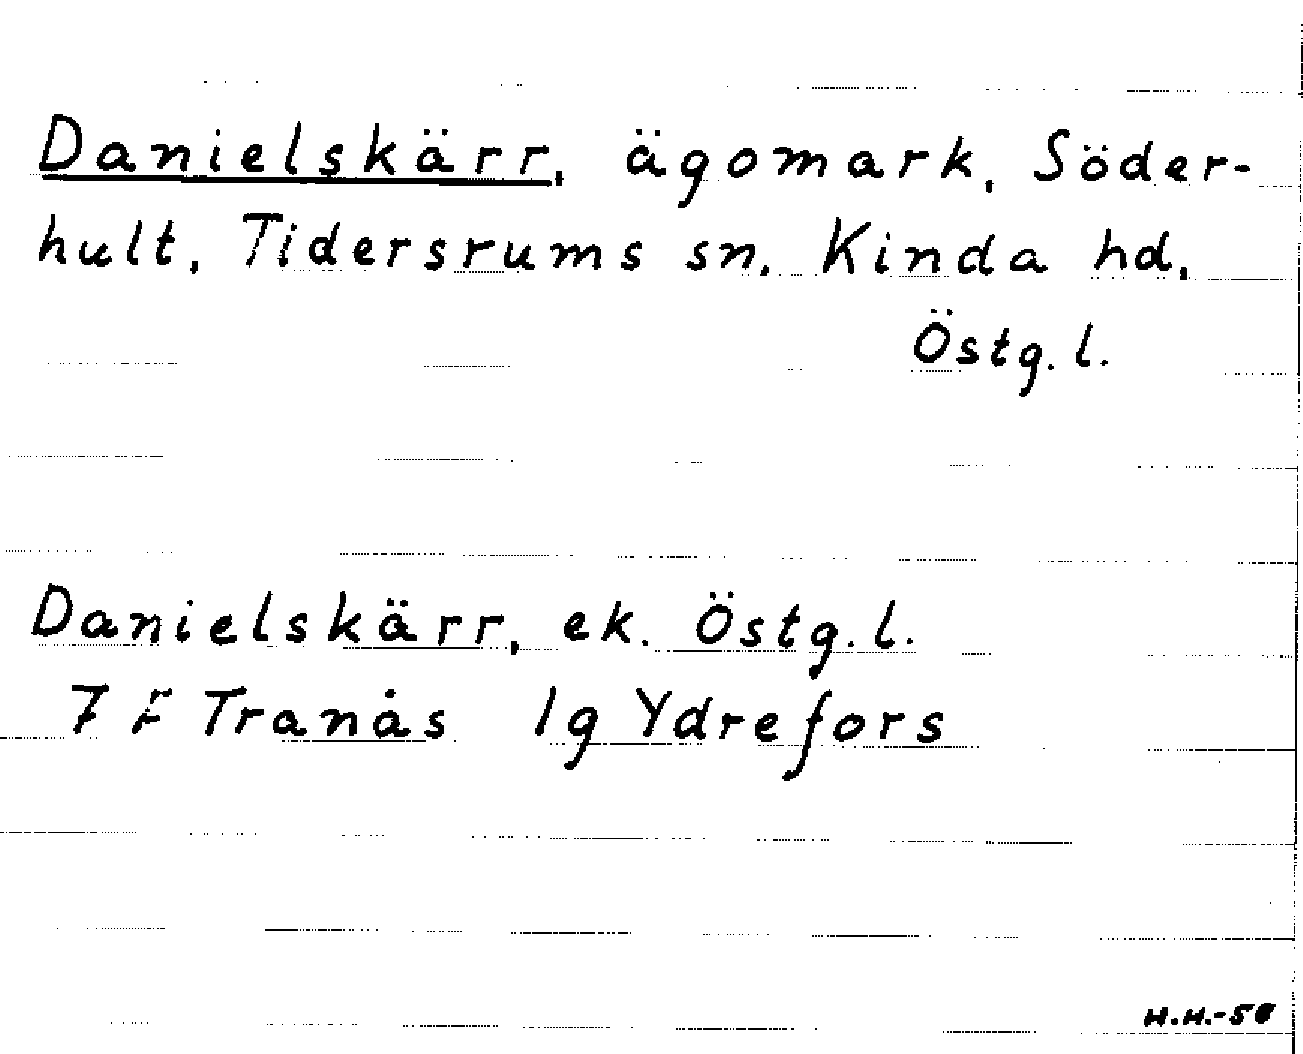 Danielskärr, ägomark, Söder-
hult, Tidersrums sn, Kinda hd,
Östg. l.
Danielskärr, ek. Östg. l.
7 F Tranås 1g Ydrefors